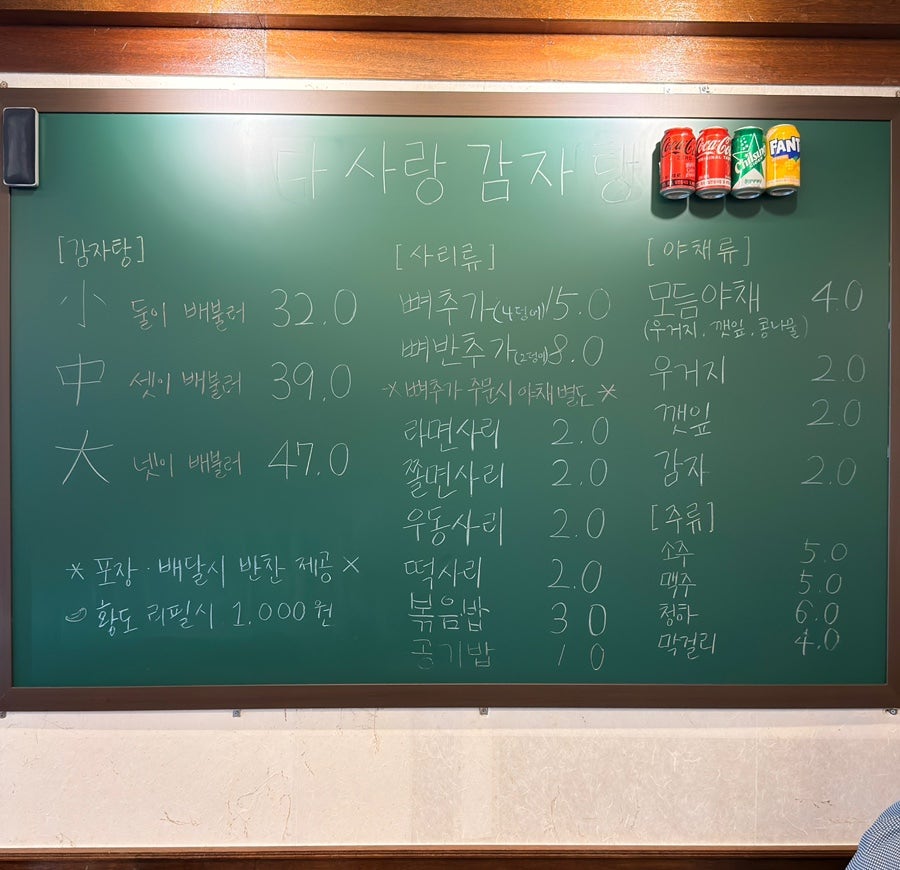 다사랑감자탕
[감자탕]
小 둘이 배불러 32.0
中 셋이 배불러 39.0
大 넷이 배불러 47.0
* 포장 · 배달시 반찬 제공 *
황도 리필시 1.000원
[사리류]
뼈추가(4덩어) 15.0
뼈반추가(2덩이) 8.0
* 뼈추가 주문시 야채 별도 *
라면사리 2.0
쫄면사리 2.0
우동사리 2.0
떡사리 2.0
볶음밥 3 0
공기밥 1 0
[야채류]
모듬야채 4.0
(우거지, 깻잎, 콩나물)
우거지 2.0
깻잎 2.0
감자 2.0
[주류]
소주 5.0
맥주 5.0
청하 6.0
막걸리 4.0
Coca-Cola
ZERO
Coca-Cola
ORIGINAL TASTE
Chilsung
FANT